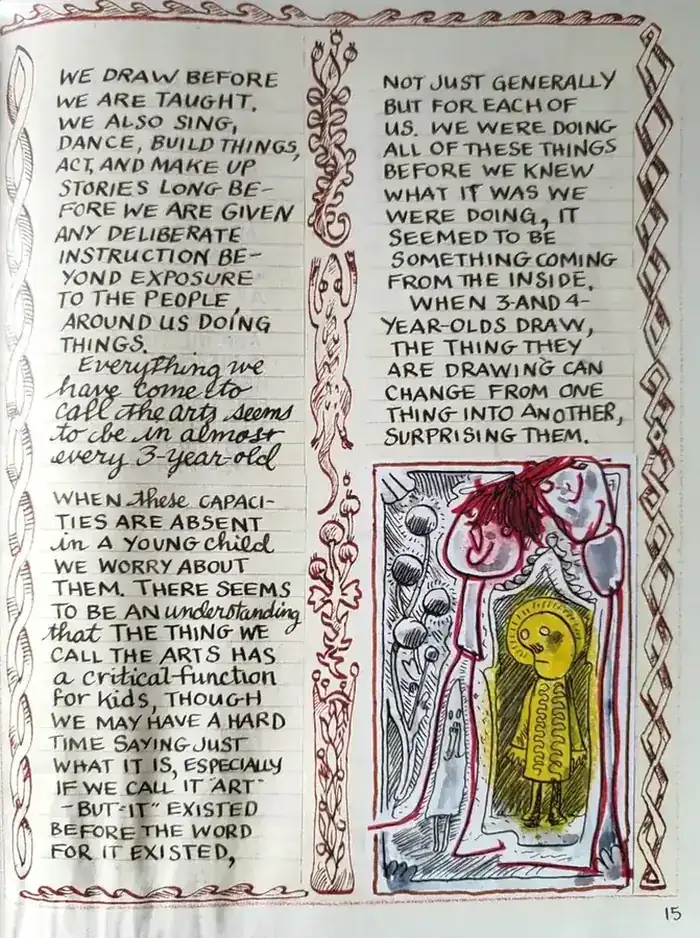 WE DRAW BEFORE
WE ARE TAUGHT.
WE ALSO SING,
DANCE, BUILD THINGS,
ACT, AND MAKE UP
STORIES LONG BE-
FORE WE ARE GIVEN
ANY DELIBERATE
INSTRUCTION BE-
YOND EXPOSURE
TO THE PEOPLE
AROUND US DOING
THINGS.
Everything we
have come to
call the arts seems
to be in almost
every 3-year-old
WHEN these CAPACI-
TIES ARE ABSENT
in A YOUNG child
WE WORRY ABOUT
THEM. THERE SEEMS
TO BE AN understanding
that THE THING WE
CALL THE ARTS HAS
a critical function
for kids, THOUGH
WE MAY HAVE A HARD
TIME SAYING JUST
WHAT IT IS, ESPECIALLY
IF WE CALL IT "ART"
-BUT "IT" EXISTED
BEFORE THE WORD
FOR IT EXISTED,
NOT JUST GENERALLY
BUT FOR EACH OF
US. WE WERE DOING
ALL OF THESE THINGS
BEFORE WE KNEW
WHAT IT WAS WE
WERE DOING, IT
SEEMED TO BE
SOMETHING COMING
FROM THE INSIDE.
WHEN 3-AND 4-
YEAR-OLDS DRAW,
THE THING THEY
ARE DRAWING CAN
CHANGE FROM ONE
THING INTO ANOTHER,
SURPRISING THEM.
15